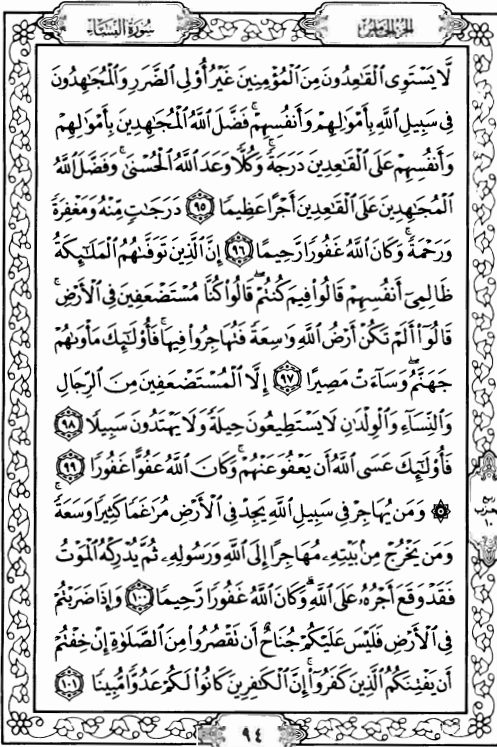 سُورَةُ النِّسَاءِ
الجُزْءُ الخَامِسُ
لَّا يَسْتَوِي الْقَاعِدُونَ مِنَ الْمُؤْمِنِينَ غَيْرُ أُوْلِي الضَّرَرِ وَالْمُجَاهِدُونَ
فِي سَبِيلِ اللَّهِ بِأَمْوَالِهِمْ وَأَنفُسِهِمْ ۚ فَضَّلَ اللَّهُ الْمُجَاهِدِينَ بِأَمْوَالِهِمْ
وَأَنفُسِهِمْ عَلَى الْقَاعِدِينَ دَرَجَةً ۚ وَكُلًّا وَعَدَ اللَّهُ الْحُسْنَىٰ ۚ وَفَضَّلَ اللَّهُ
الْمُجَاهِدِينَ عَلَى الْقَاعِدِينَ أَجْرًا عَظِيمًا ٩٥ دَرَجَاتٍ مِّنْهُ وَمَغْفِرَةً
وَرَحْمَةً ۚ وَكَانَ اللَّهُ غَفُورًا رَّحِيمًا ٩٦ إِنَّ الَّذِينَ تَوَفَّاهُمُ الْمَلَائِكَةُ
ظَالِمِي أَنفُسِهِمْ قَالُوا فِيمَ كُنتُمْ ۖ قَالُوا كُنَّا مُسْتَضْعَفِينَ فِي الْأَرْضِ ۚ
قَالُوا أَلَمْ تَكُنْ أَرْضُ اللَّهِ وَاسِعَةً فَتُهَاجِرُوا فِيهَا ۚ فَأُوْلَٰئِكَ مَأْوَاهُمْ
جَهَنَّمُ ۖ وَسَاءَتْ مَصِيرًا ٩٧ إِلَّا الْمُسْتَضْعَفِينَ مِنَ الرِّجَالِ
وَالنِّسَاءِ وَالْوِلْدَانِ لَا يَسْتَطِيعُونَ حِيلَةً وَلَا يَهْتَدُونَ سَبِيلًا ٩٨
فَأُوْلَٰئِكَ عَسَى اللَّهُ أَن يَعْفُوَ عَنْهُمْ ۚ وَكَانَ اللَّهُ عَفُوًّا غَفُورًا ٩٩
۞ وَمَن يُهَاجِرْ فِي سَبِيلِ اللَّهِ يَجِدْ فِي الْأَرْضِ مُرَاغَمًا كَثِيرًا وَسَعَةً ۚ
وَمَن يَخْرُجْ مِن بَيْتِهِ مُهَاجِرًا إِلَى اللَّهِ وَرَسُولِهِ ثُمَّ يُدْرِكْهُ الْمَوْتُ
فَقَدْ وَقَعَ أَجْرُهُ عَلَى اللَّهِ ۗ وَكَانَ اللَّهُ غَفُورًا رَّحِيمًا ١٠٠ وَإِذَا ضَرَبْتُمْ
فِي الْأَرْضِ فَلَيْسَ عَلَيْكُمْ جُنَاحٌ أَن تَقْصُرُوا مِنَ الصَّلَاةِ إِنْ خِفْتُمْ
أَن يَفْتِنَكُمُ الَّذِينَ كَفَرُوا ۚ إِنَّ الْكَافِرِينَ كَانُوا لَكُمْ عَدُوًّا مُّبِينًا ١٠١
ربع
الحزب
١٠
٩٤